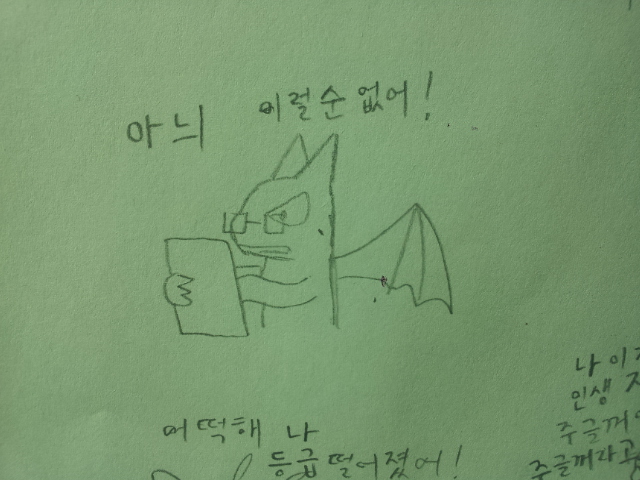 아늬 이럴순없어!
어떡해 나
등급떨어졌어!
나이제
인생
주글꺼야
주글꺼라고